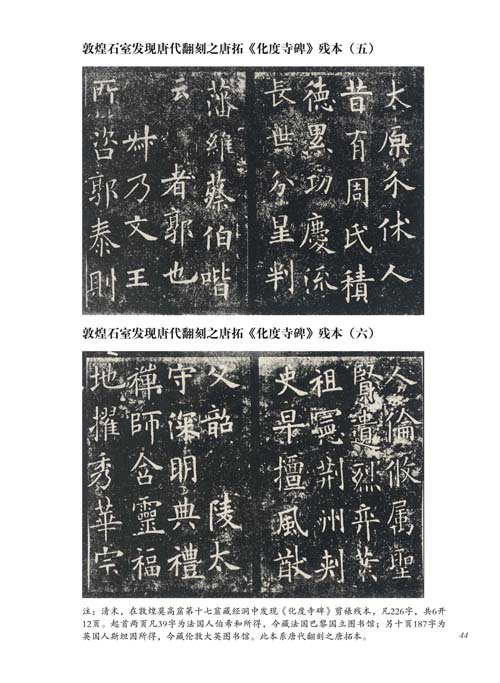 敦煌石室发现唐代翻刻之唐拓《化度寺碑》残本（五）
太原介休人
昔有周氏積
德累功慶流
長世分星判
藩維蔡伯喈
云 者郭也
叔乃文王
所咨郭泰則
敦煌石室发现唐代翻刻之唐拓《化度寺碑》残本（六）
人倫攸属聖
賢遺烈弈葉
祖憲荆州刾
史早擅風猷
父韶 陵太
守深明典禮
禪師含靈福
地擢秀華宗
注：清末，在敦煌莫高窟第十七窟藏经洞中发现《化度寺碑》剪裱残本，凡226字，共6开
12页。起首两页凡39字为法国人伯希和所得，今藏法国巴黎国立图书馆；另十页187字为
英国人斯坦因所得，今藏伦敦大英图书馆。此本系唐代翻刻之唐拓本。
44